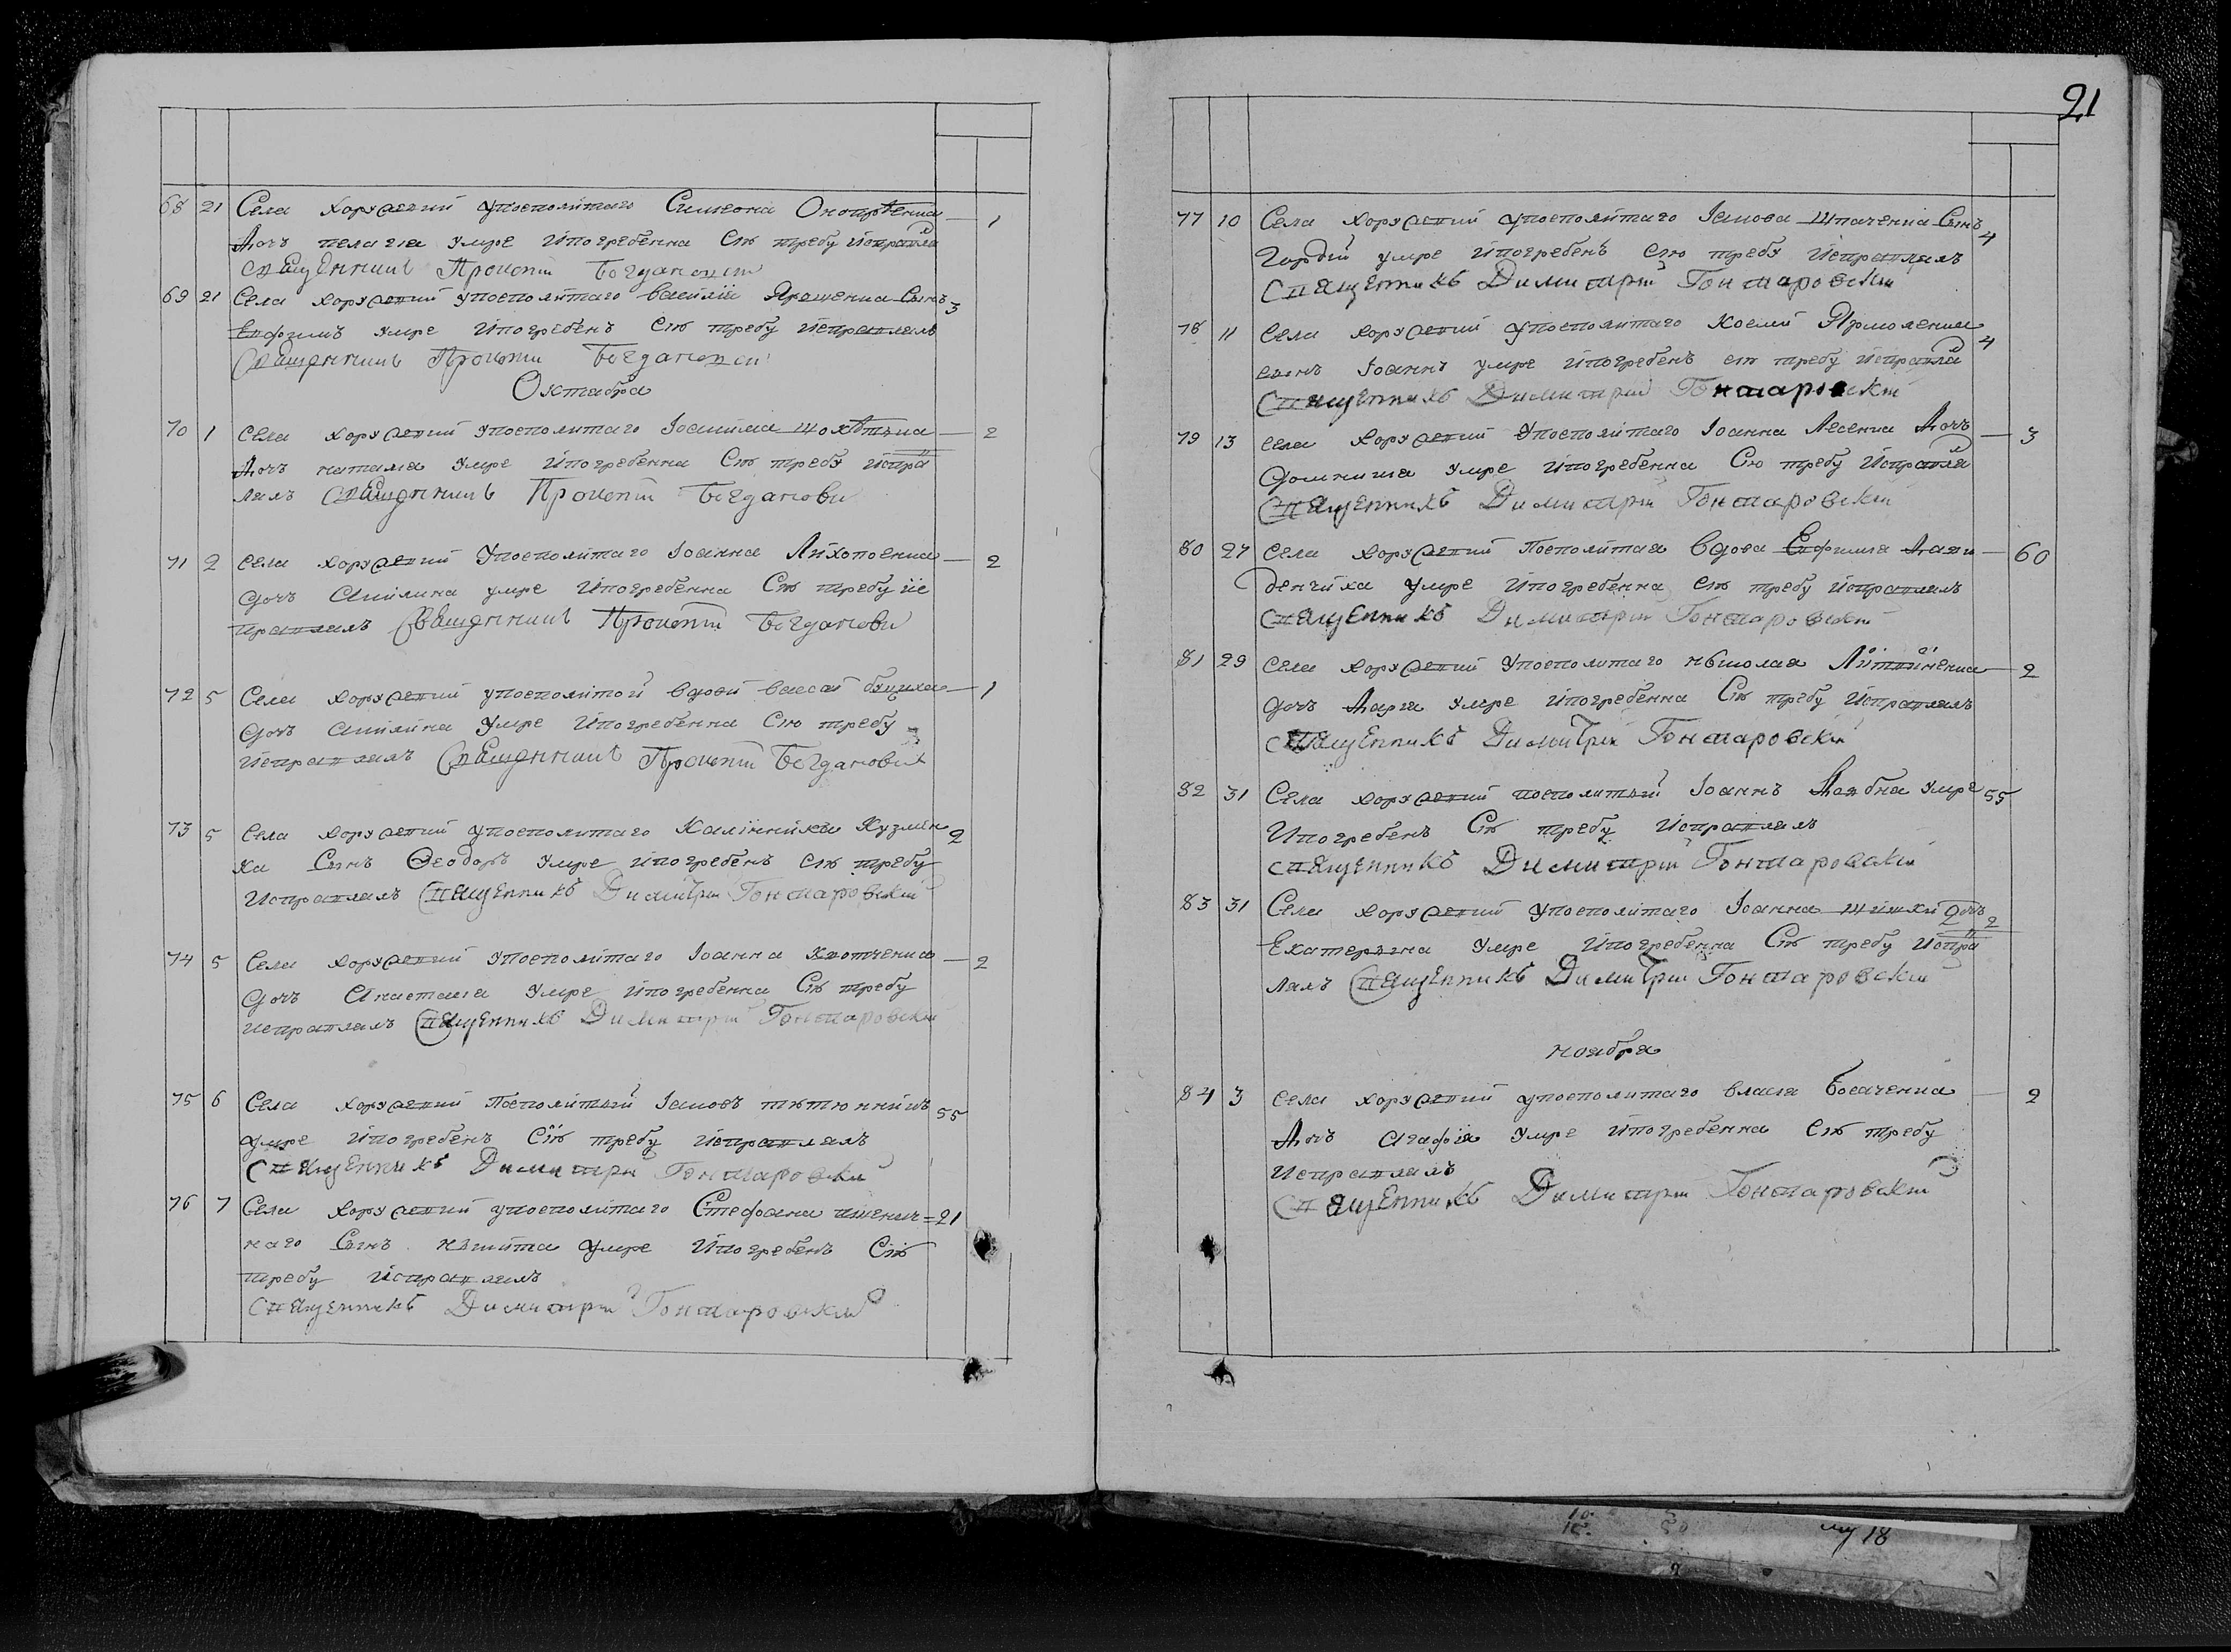 68 21 Села Хоружевки упосполитаго Симеона Оноприенка — 1
дочь пелагия умре ипогребенна Сию требу исправлял
священникъ Прокопий Богданович
69 21 Села хоружевки упосполитаго василия Ярошенка Сынъ 3
Евфимъ умре ипогребенъ Сию требу исправлялъ
Священникъ Прокопий Богданович
Октября
70 1 Села хоружевки упосполитаго Іоакима — 2
дочь наталия умре ипогребенна Сию требу испра
лялъ Священникъ Прокопий Богданови
71 2 Села хоружевки упосполитаго Іоанна — 2
дочь Акилина умре ипогребенна Сию требу ис
правлялъ Священникъ Прокопий Богданови
72 5 Села хоружевки упосполитой вдовы — 1
дочь Акилина умре ипогребенна Сию требу
исправлялъ Священникъ Прокопий Богданович
73 5 Села хоружевки упосполитаго Калінника Кузмен 2
ка Сынъ Ѳеодоръ умре ипогребенъ сию требу
исправлялъ Священникъ Димитрий Гонтаровский
74 5 Села хоружевки упосполитаго Іоанна — 2
дочь Анастасия умре ипогребенна Сию требу
исправлялъ Священникъ Димитрий Гонтаровский
75 6 Села хоружевки Посполитый Іаковъ 55
умре ипогребенъ Сию требу исправлялъ
Священникъ Димитрий Гонтаровский
76 7 Села хоружевки упосполитаго Стефана = 21
наго Сынъ никита умре ипогребенъ Сию
требу исправлялъ
Священникъ Димитрий Гонтаровский
21
77 10 Села хоружевки упосполитаго Іакова Шпаченка Сынъ 4
Гордий умре ипогребенъ сию требу исправлялъ
Священникъ Димитрий Гонтаровский
78 11 Села хоружевки упосполитаго Космы Ярмоленка 4
сынъ Іоаннъ умре ипогребенъ сию требу исправлял
Священникъ Димитрий Гонтаровский
79 13 Села хоружевки упосполитаго Іоанна Лесенка дочь — 3
домникия умре ипогребенна Сию требу исправлял
Священникъ Димитрий Гонтаровский
80 27 Села хоружевки Посполитая вдова Евфимия — 60
денчиха умре ипогребенна сию требу исправлялъ
Священникъ Димитрий Гонтаровский
81 29 Села хоружевки упосполитаго николая Литвиненка — 2
дочь Мария умре ипогребенна Сию требу исправлялъ
Священникъ Димитрий Гонтаровский
82 31 Села хоружевки посполитый Іоаннъ умре 55
ипогребенъ Сию требу исправлялъ
Священникъ Димитрий Гонтаровский
83 31 Села хоружевки упосполитаго Іоанна дочь 2
Екатерина умре ипогребенна Сию требу испра
лялъ Священникъ Димитрий Гонтаровский
ноября
84 3 Села хоружевки упосполитаго власия — 2
дочь агафія умре ипогребенна Сию требу
исправлялъ
Священникъ Димитрий Гонтаровский
18